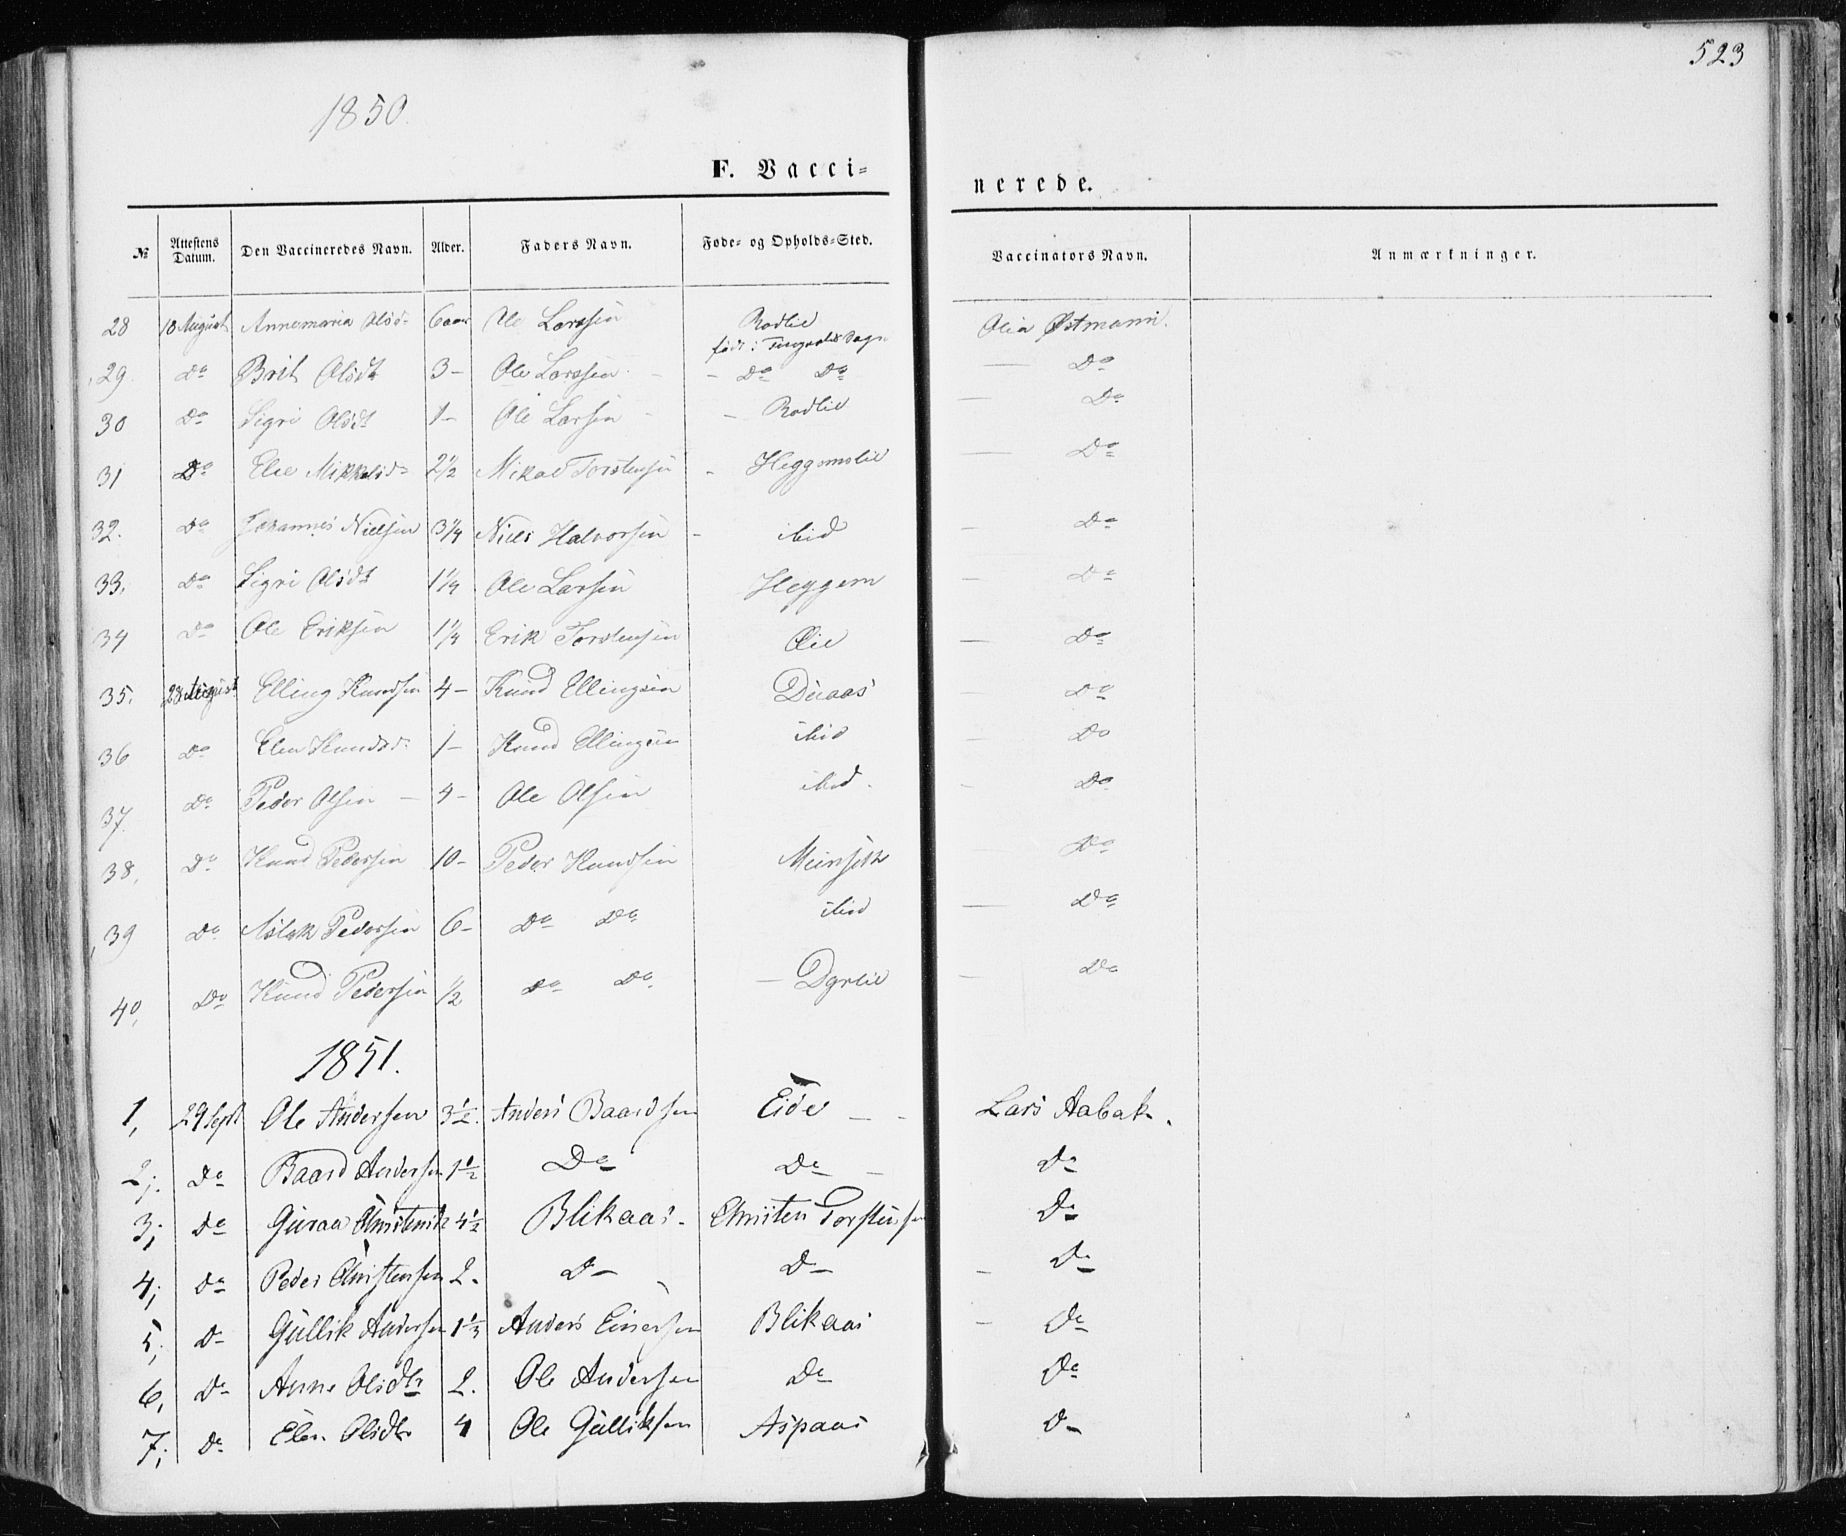 523
1850.
F. Vacci-
nerede.
№ Attestens Datum. Den Vaccineredes Navn. Alder. Faders Navn. Føde- og Opholds-Sted. Vaccinators Navn. Anmærkninger.
28 18 August Annemaria Olsd: 6 aar Ole Larsen Rodlie Østmann.
29 Do Brit Olsdt 3 – Ole Larssen – Do Do – Do
30 Do Sigri Olsdt 1 – Ole Larsen – Rodlie – Do
31 Do Elie Mikkelsd: 2½ Mikal Torstensen – Heggemslie – Do
32. Do Johannes Nielsen 3¼ Niels Halvorsen – ibid – Do
33. Do Sigri Olsdt 1¼ Ole Larsen Heggem – Do
34 Do Ole Eriksen 1¼ Erik Torstensen Øie – Do
35. 28 August Elling Knudsen 4 – Knud Ellingsen Duaas – Do
36 Do Elen Knudsd: 1 – Knud Ellingsen ibid – Do
37. Do Peder Olsen – 4 – Ole Olsen ibid. – Do
38. Do Knud Pedersen 10 – Peder Knudsen – Do
39 Do Aslak Pedersen 6 – Do Do ibid – Do
40. Do Knud Pedersen ½ Do Do. – Dyrlie – Do
1851.
1, 29 Sept Ole Andersen 3½. Anders Baardsen Eide – – Lars Aabak.
2; Do Baard Andersen 1½ Do Do – Do
3; Do Guraa Christensdt 4½ Blikaas. Christen Torstensen Do
4; Do Peder Christensen 2. D– D– – Do
5; D– Gullik Andersen 1⅓ Anders Einersen Blikaas – Do
6, Do Anne Olsdtr 2. Ole Andersen Do Do
7; Do Elen Olsdtr 4 Ole Gulliksen Aspaas D–